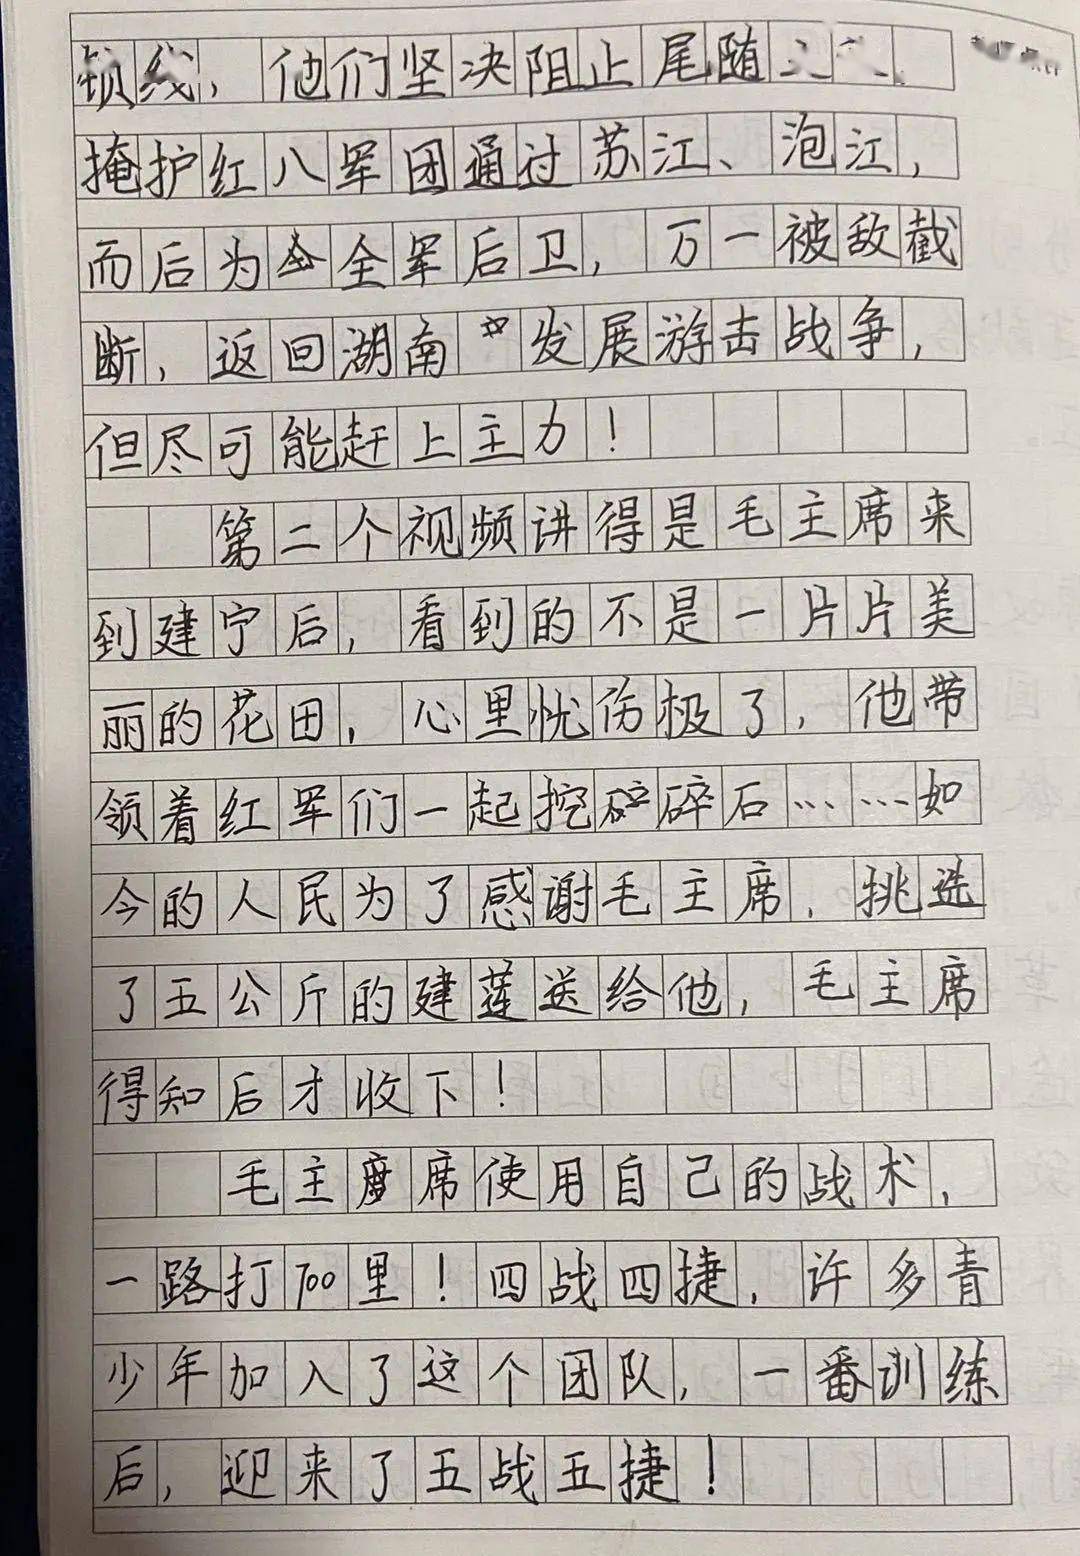 锁线，他们坚决阻止尾随之敌，
掩护红八军团通过苏江、泡江，
而后为全军后卫，万一被敌截
断，返回湖南发展游击战争，
但尽可能赶上主力！
第二个视频讲得是毛主席来
到建宁后，看到的不是一片片美
丽的花田，心里忧伤极了，他带
领着红军们一起挖矿碎石……如
今的人民为了感谢毛主席，挑选
了五公斤的建莲送给他，毛主席
得知后才收下！
毛主席使用自己的战术，
一路打700里！四战四捷，许多青
少年加入了这个团队，一番训练
后，迎来了五战五捷！